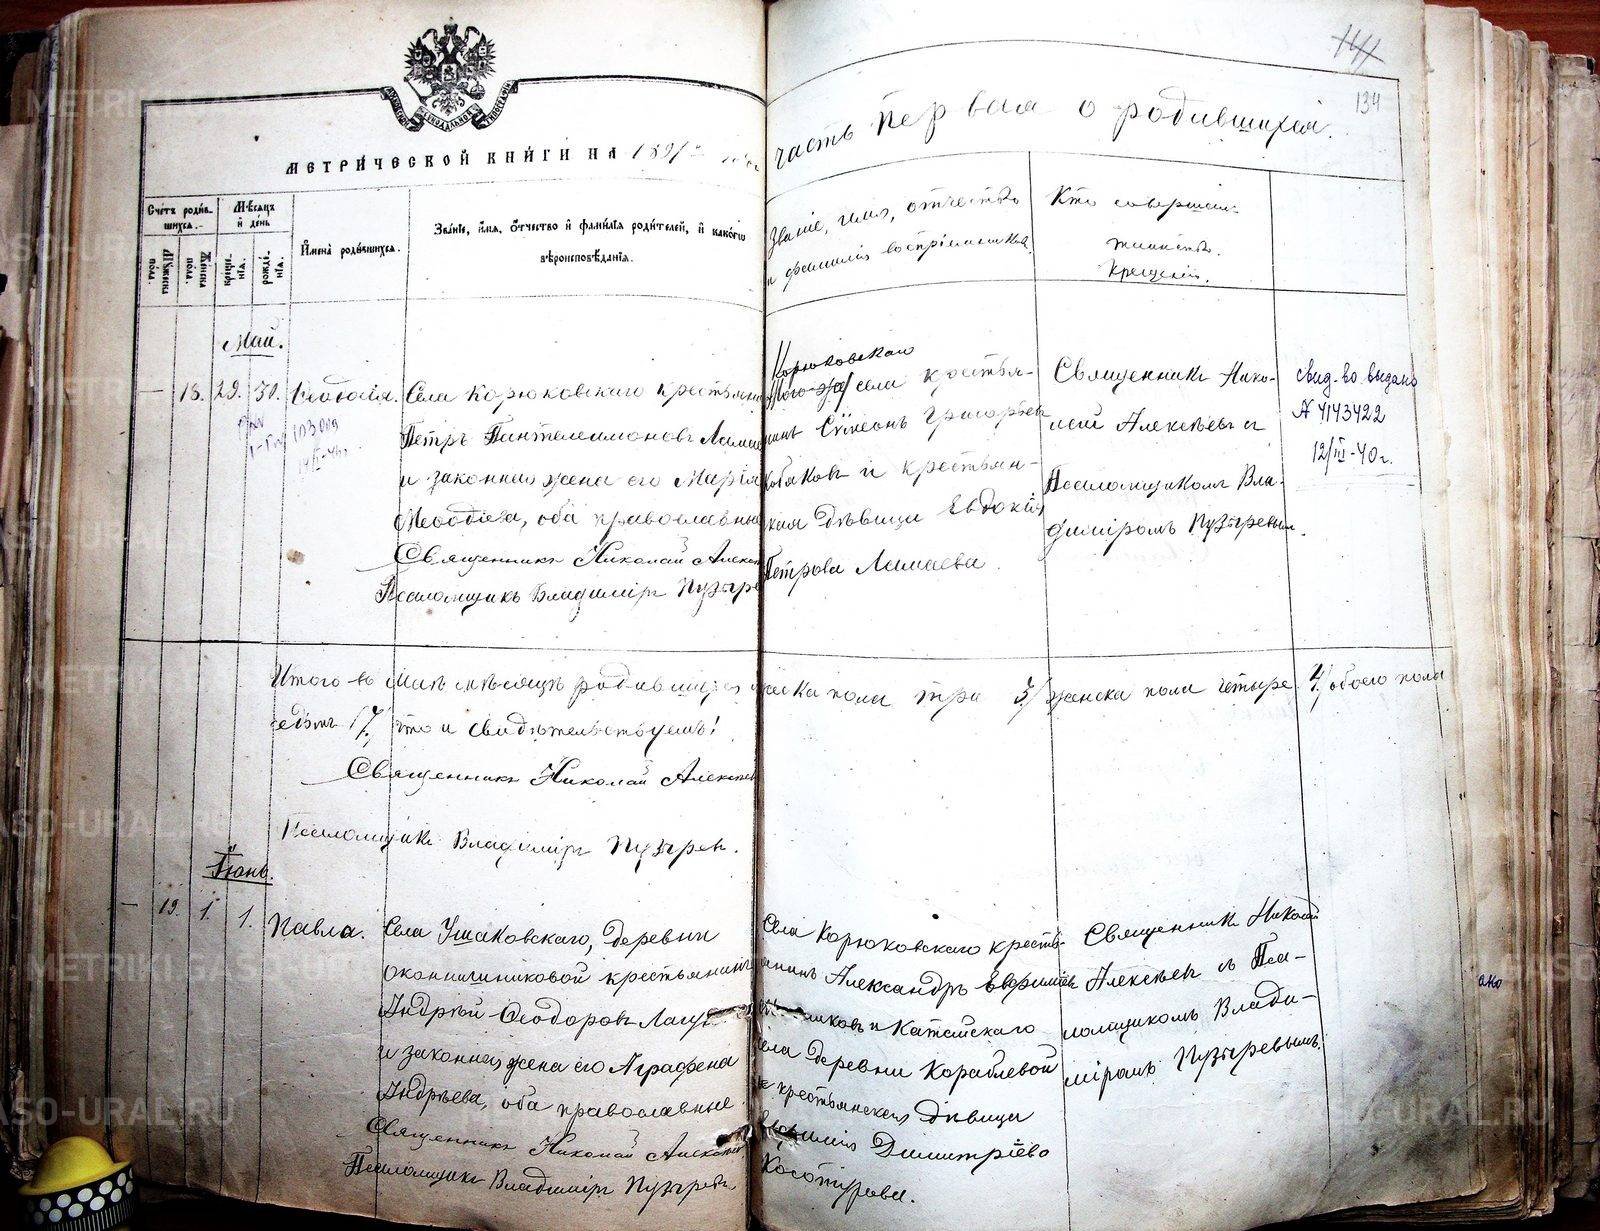 МЕТРИЧЕСКОЙ КНИГИ НА 1891 й годъ
часть первая о родившихся.
134
Счётъ родившихся.
Мѣсяцъ и день
Мужеска пола.
Женска пола.
крещенія.
рожденія.
Имена родившихся.
Званіе, имя, отчество и фамилія родителей, и какого
вѣроисповѣданія.
Званіе, имя, отчество
и фамилія воспріемниковъ
Кто совершалъ
таинство
крещенія.
Май.
— 18. 29. 30.
Ѳеодосія.
Села Корюковскаго крестьянинъ
Петръ Пантелеимоновъ
и законная жена его Марія
Меѳодіева, оба православные
Священникъ Николай Алексѣевъ
Псаломщикъ Владиміръ Пузыревъ
103009
Корюковскаго
Того-же села крестья-
нинъ Сѵмеонъ Григорьевъ
и крестьян-
ская дѣвица Евдокія
Петрова Ламаева
Священникъ Нико-
лай Алексѣевъ и
Псаломщикомъ Вла-
диміромъ Пузыревымъ.
Свид-во выдано
№ 4143422
12/III-40 г.
Итого въ Маѣ мѣсяцѣ родившихся мужеска пола три 3/ женска пола четыре 4/ обоего пола
седьмь /7/, что и свидѣтельствуемъ!
Священникъ Николай Алексѣевъ
Псаломщикъ Владиміръ Пузыревъ.
Іюнь.
— 19. 1. 1.
Павла.
Села Ушаковскаго, деревни
Оконишниковой крестьянинъ
Андрей Ѳеодоровъ
и законная жена его Аграфена
Андрѣева, оба православные
Священникъ Николай Алексѣевъ
Псаломщикъ Владиміръ Пузыревъ.
Села Корюковскаго кресть-
янинъ Александръ Евфиміевъ
и Катайскаго
села деревни Кораблевой
крестьянская дѣвица
Евфимія Димитріева
Косотурова.
Священникъ Николай
Алексѣевъ съ Пса-
ломщикомъ Влади-
міромъ Пузыревымъ.
METRIKI.RU
ASO-URAL.RU